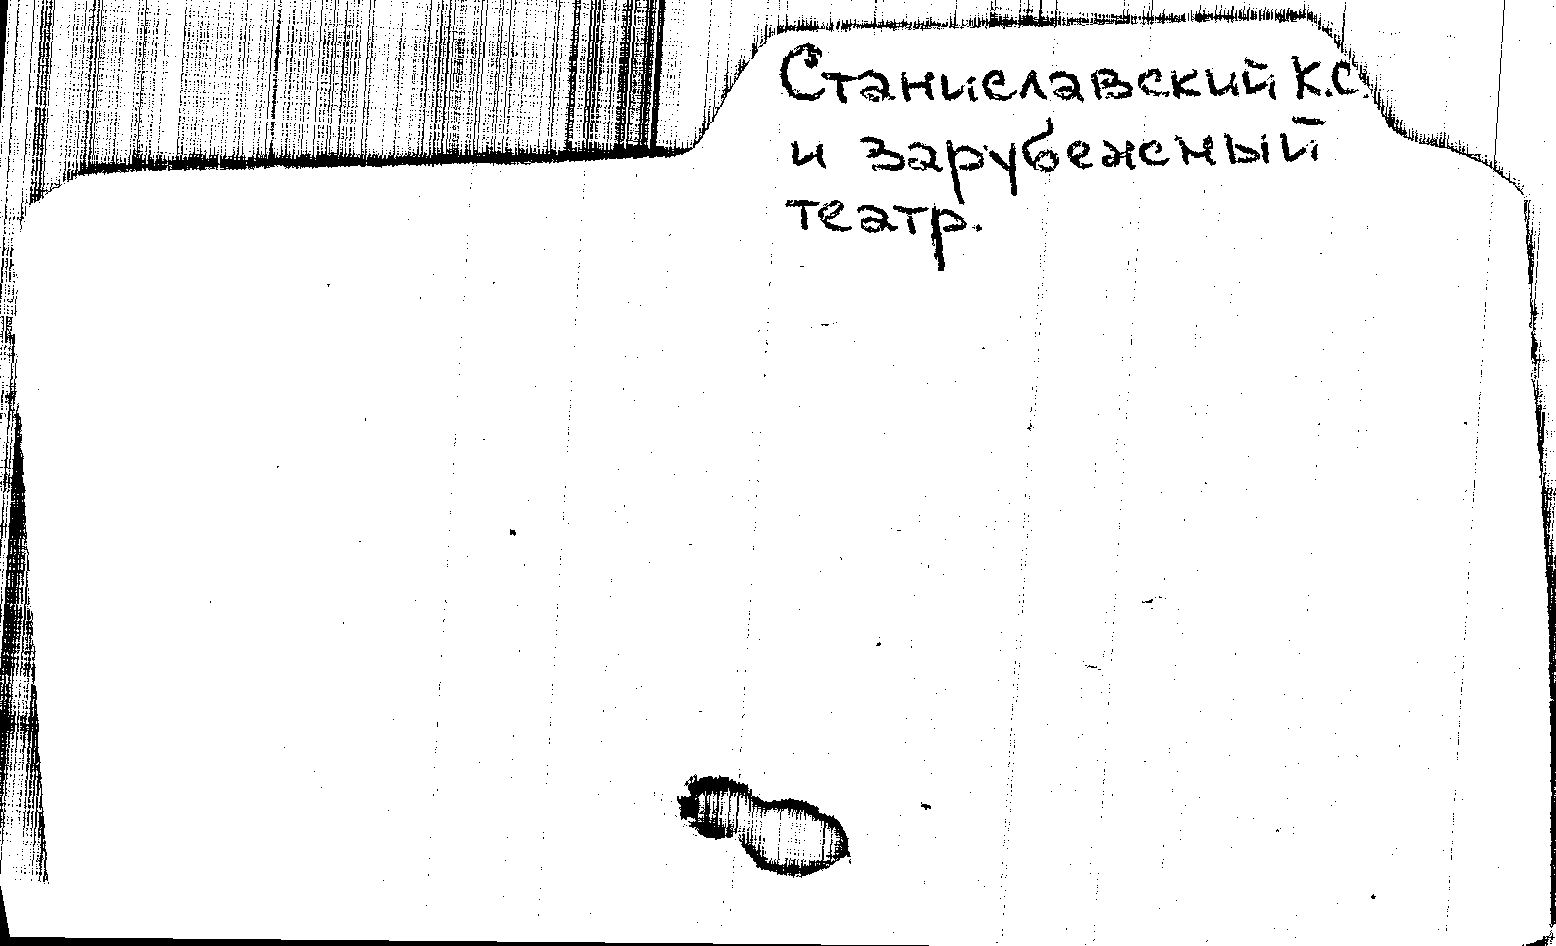 Станиславский К.С.
и зарубежный
театр.